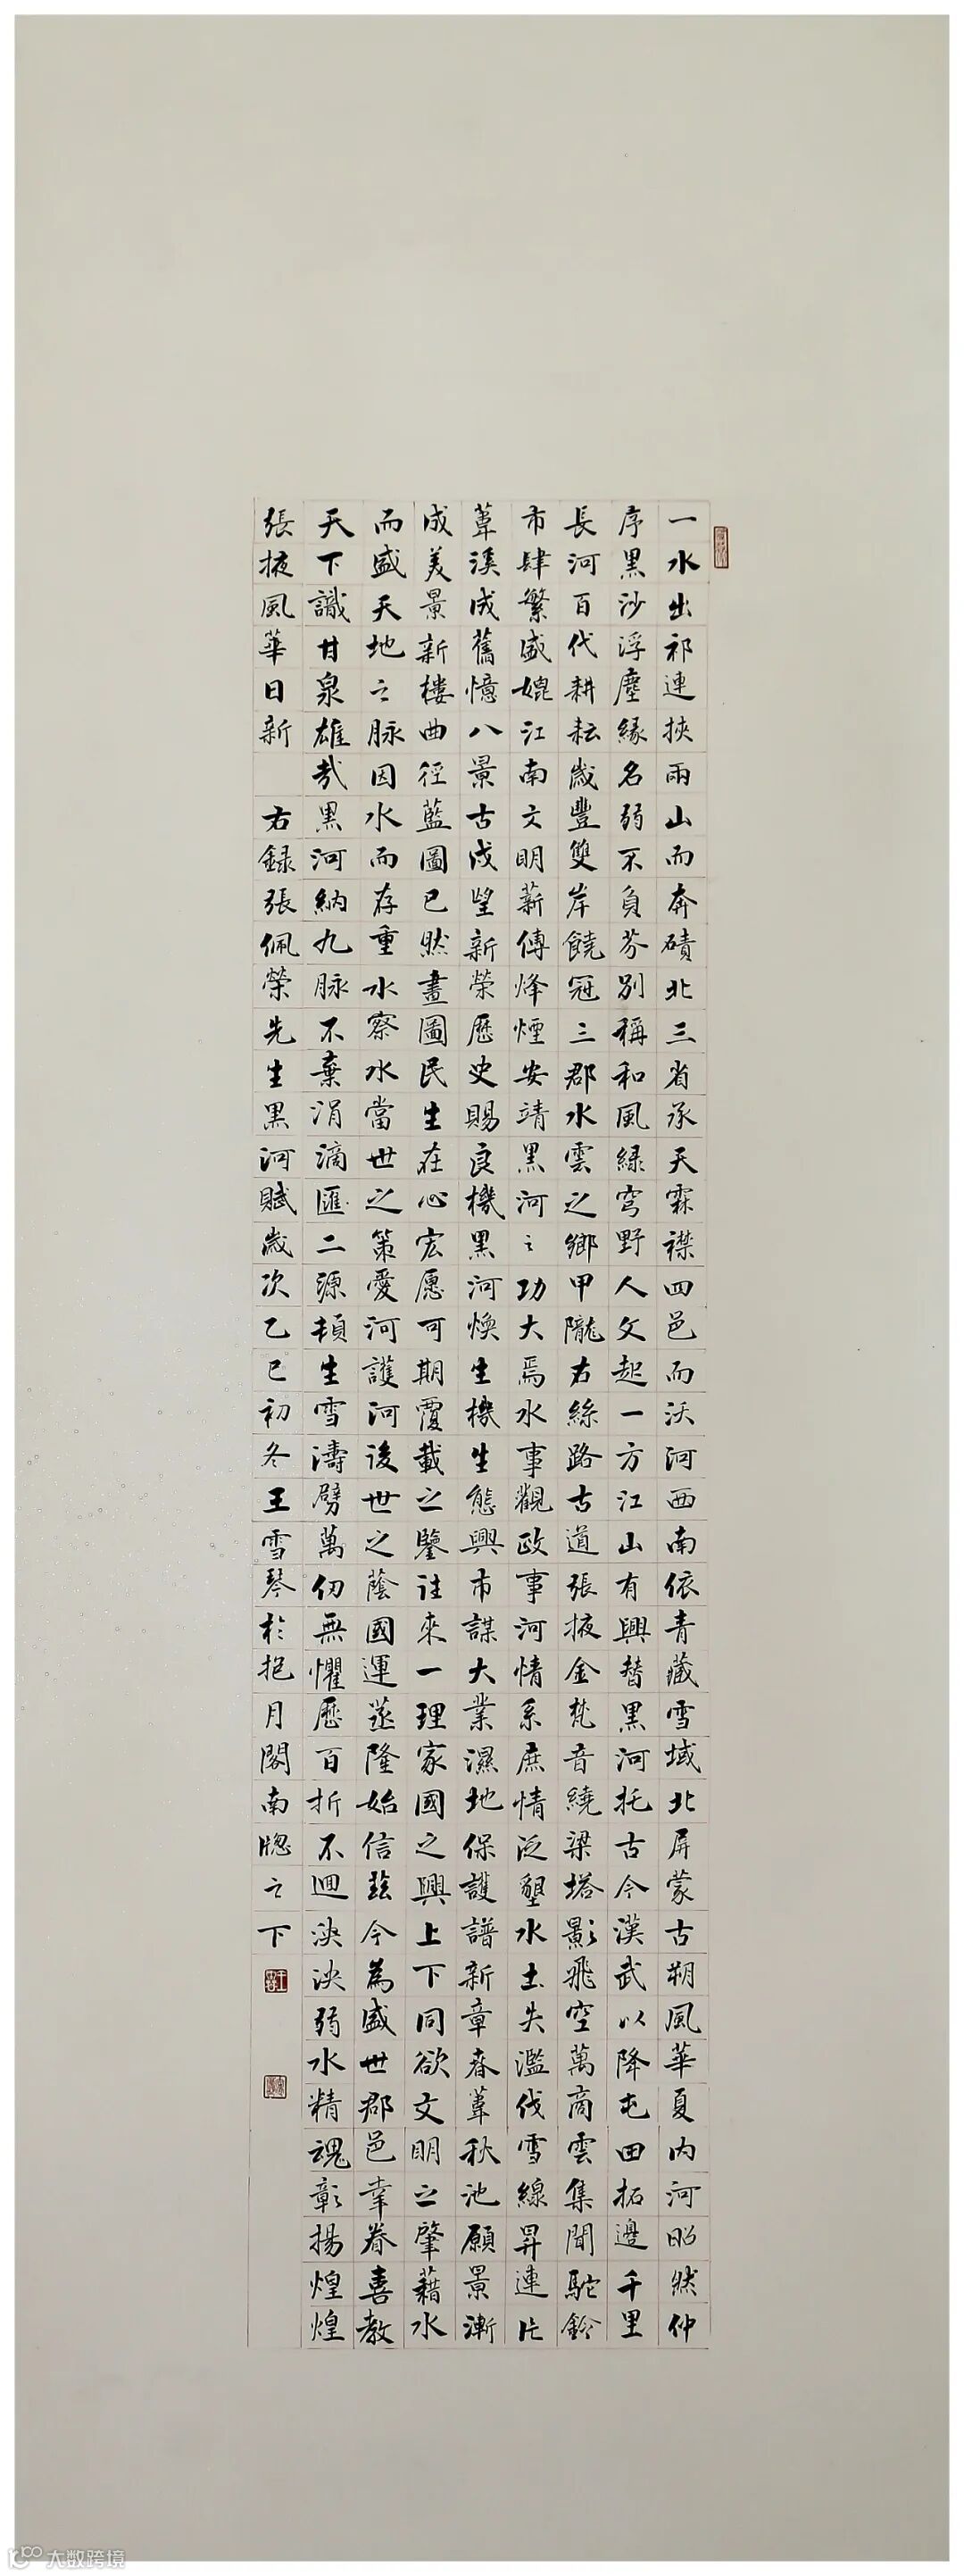 一水出祁連挾兩山而奔磧北三省承天霖襟四邑而沃河西南依青藏雪域北屏蒙古朔風華夏內河昭然仲
序黑沙浮塵緣名弱不負芬別稱和風綠穹野人文起一方江山有興替黑河托古今漢武以降屯田拓邊千里
長河百代耕耘歲豐雙岸饒冠三郡水雲之鄉甲隴右絲路古道張掖金梵音繞梁塔影飛空萬商雲集聞駝鈴
市肆繁盛媲江南文明薪傳烽煙安靖黑河之功大焉水事觀政事河情系庶情泛墾水土失濫伐雪線昇連片
葦溪成舊憶八景古戍望新榮歷史賜良機黑河煥生機生態興市謀大業濕地保護譜新章春葦秋池願景漸
成美景新樓曲徑藍圖已然畫圖民生在心宏愿可期覆載之鑒往來一理家國之興上下同欲文明之肇藉水
而盛天地之脉因水而存重水察水當世之策愛河護河後世之蔭國運蒸隆始信茲今為盛世郡邑幸眷喜教
天下識甘泉雄哉黑河納九脉不棄涓滴匯二源頓生雪濤劈萬仞無懼歷百折不迴泱泱弱水精魂彰揚煌煌
張掖風華日新 右録張佩榮先生黑河賦歲次乙巳初冬王雪琴於抱月閣南牕之下
大数跨境